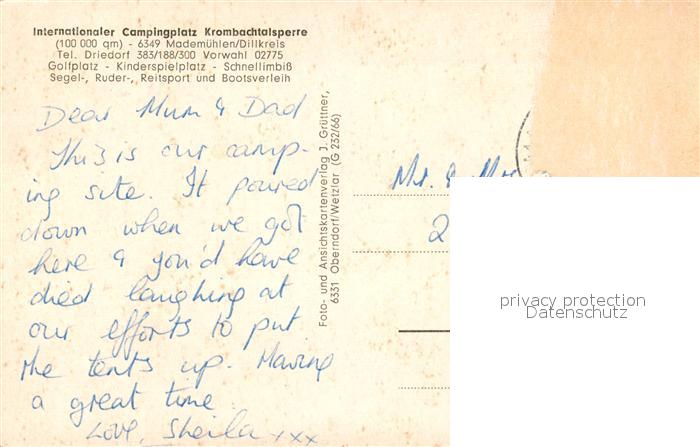 Internationaler Campingplatz Krombachtalsperre
(100 000 qm) - 6349 Mademühlen/Dillkreis
Tel. Driedorf 383/188/300 Vorwahl 02775
Golfplatz - Kinderspielplatz - Schnellimbiß
Segel-, Ruder-, Reitsport und Bootsverleih
Dear Mum & Dad
This is our camp-
ing site. It poured
down when we got
here & you'd have
died laughing at
our efforts to put
the tents up. Having
a great time
Love, Sheila xxx
Foto- und Ansichtskartenverlag J. Grüttner,
6331 Oberndorf/Wetzlar (G 232/66)
Mr. &
2
privacy protection
Datenschutz